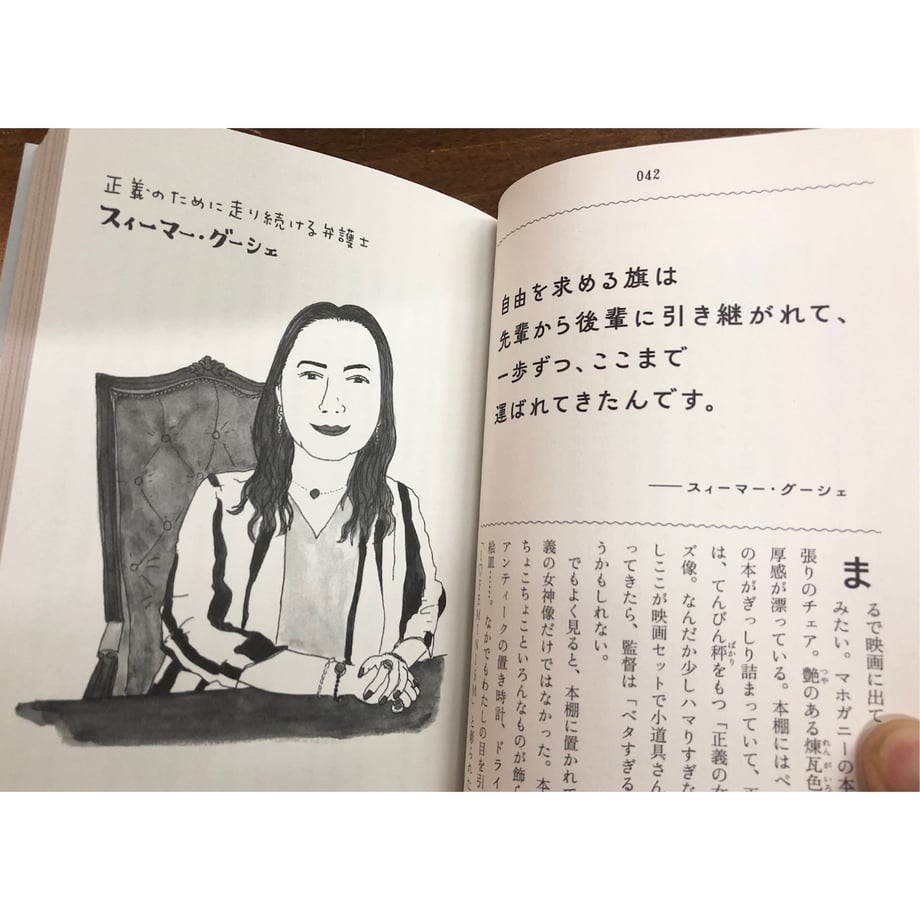 正義のために走り続ける弁護士
スィーマー・グーシェ
042
自由を求める旗は
先輩から後輩に引き継がれて、
一歩ずつ、ここまで
運ばれてきたんです。
──スィーマー・グーシェ
まるで映画に出て
みたい。マホガニーの本
張りのチェア。艶のある煉瓦色
厚感が漂っている。本棚にはペ
の本がぎっしり詰まっていて、
は、てんびん秤をもつ「正義の女
ズ像。なんだか少しハマりすぎな
しここが映画セットで小道具さん
ってきたら、監督は「ベタすぎる
うかもしれない。
でもよく見ると、本棚に置かれ
義の女神像だけではなかった。本
ちょこちょこといろんなものが飾
アンティークの置き時計、ドライ
絵皿……。なかでもわたしの目を引
FEMINISM」と彫られた